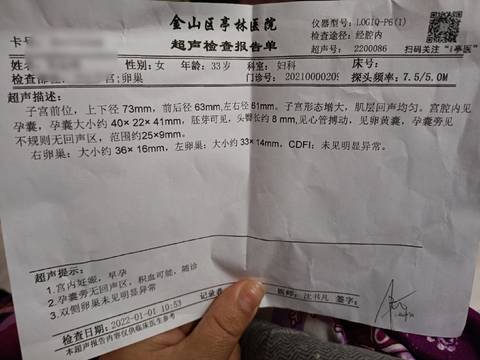 金山区亭林医院
仪器型号:LOGIQ-P6(1)
超声检查报告单
检查途径: 经腔内
卡号
超声号: 2200086
扫码关注"i亭医"
性别: 女 年龄: 33岁 科室: 妇科 床号:
宫;卵巢 门诊号: 20210000209 探头频率: 7.5/5.0M
超声描述:
子宫前位，上下径73mm，前后径63mm,左右径61mm。子宫形态增大，肌层回声均匀。宫腔内见
孕囊，孕囊大小约40×22×41mm，胚芽可见，头臀长约8mm,见心管搏动，见卵黄囊，孕囊旁见
不规则无回声区，范围约25×9mm。
右卵巢: 大小约36×16mm，左卵巢: 大小约33×14mm，CDFI: 未见明显异常。
超声提示:
1.宫内妊娠，早孕
2.孕囊旁无回声区，积血可能，随诊
3.双侧卵巢未见明显异常
记录者
医师: 沈书凡 签字:
检查日期:2022-01-01 10:53
本超声报告内容仅供临床医生参考